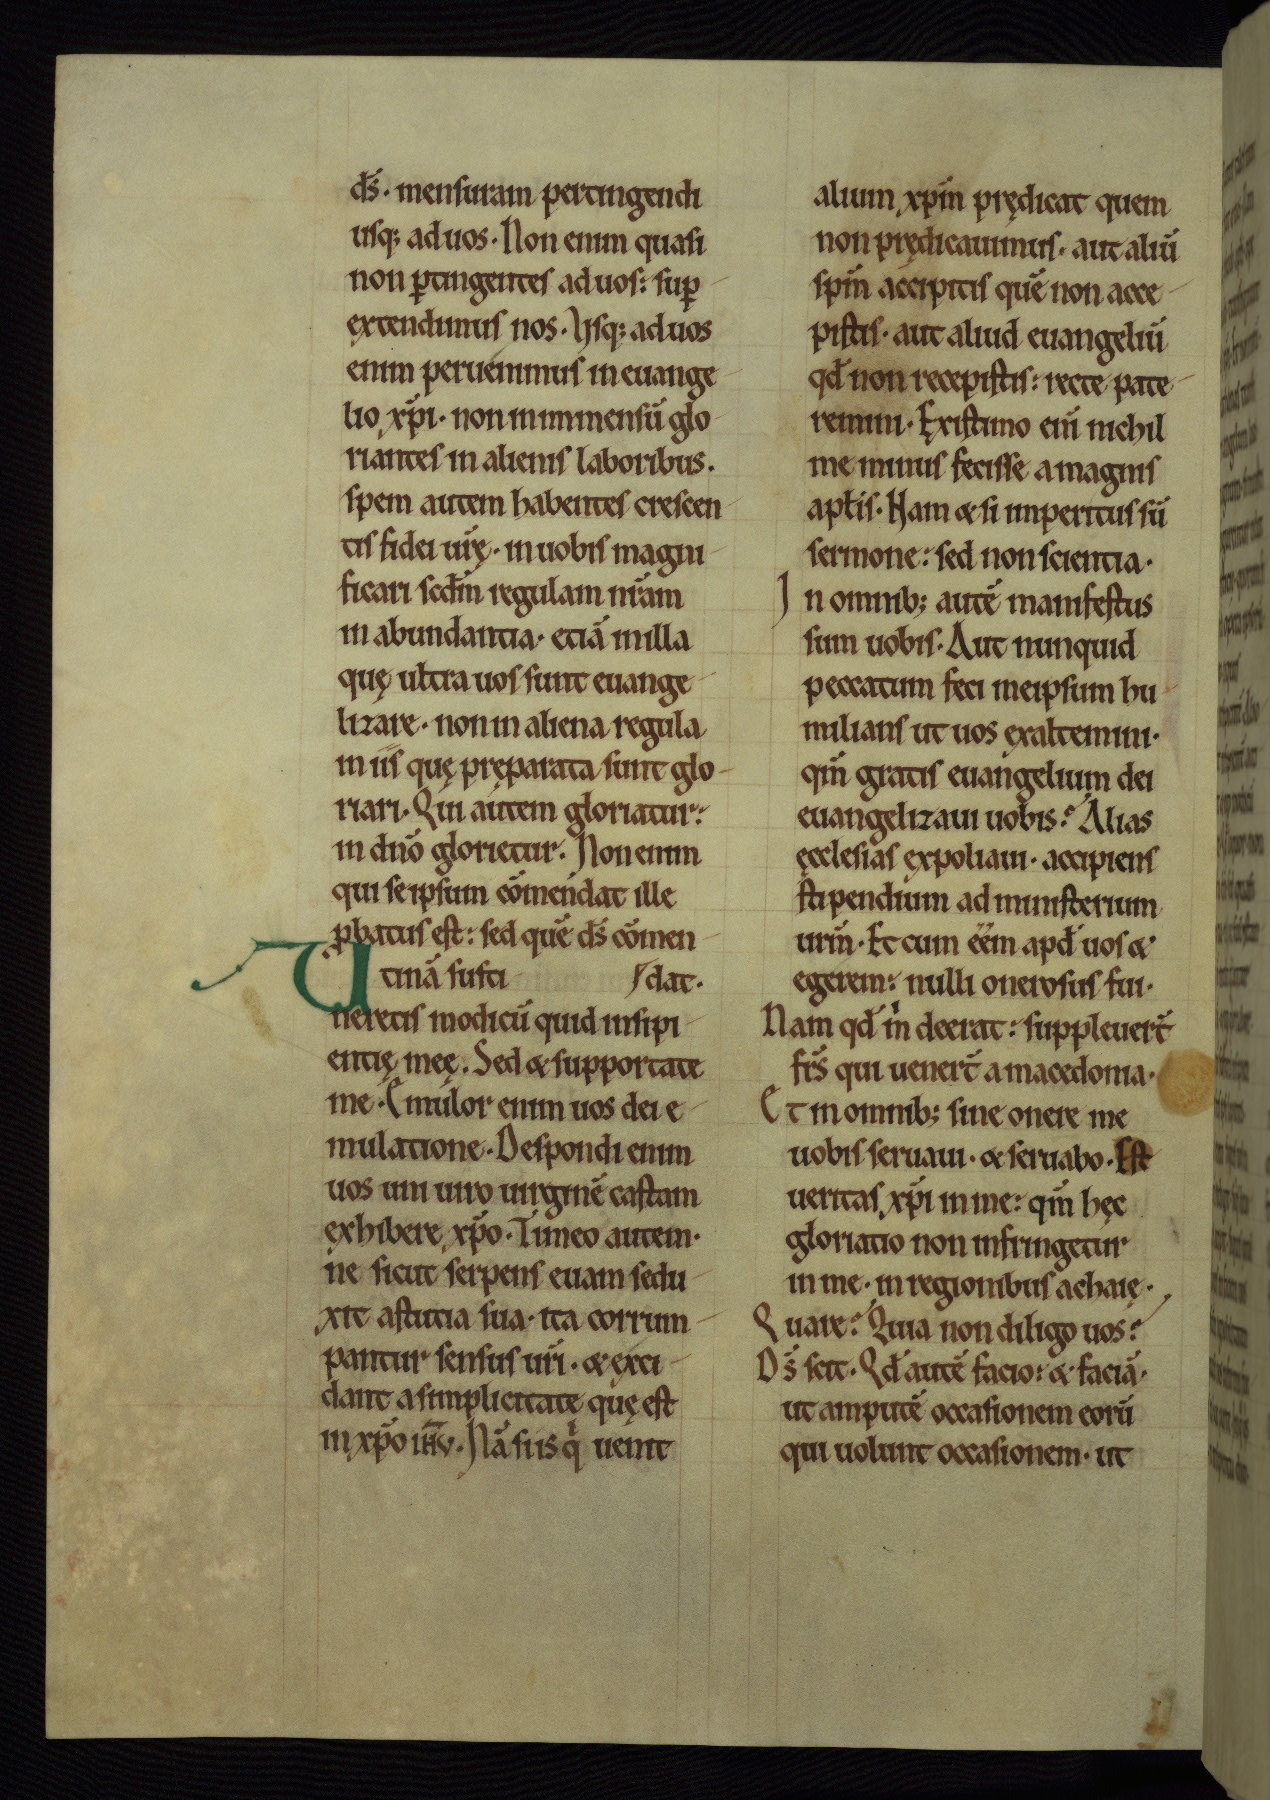 ds̄. mensuram pertingendi
usq; ad uos. Non enim quasi
non ꝑtingentes ad uos: suꝑ
extendimus nos. Usq; ad uos
enim peruenimus in euange
lio xp̄i. non in inmensū glo
riantes in alienis laboribus.
spem autem habentes crescen
tis fidei ur̄ę. in uobis magni
ficari scđm regulam nr̄am
in abundantia. etiā in illa
quę ultra uos sunt euange
lizare. non in aliena regula
in iis quę pręparata sunt glo
riari. Qui autem gloriatur:
in dn̄o glorietur. Non enim
qui se ipsum cōmendat ille
ꝓbatus est: sed quē ds̄ cōmen
dat.
Utinā susti
neretis modicū quid insipi
entię meę. Sed & supportate
me. Emulor enim uos dei e
mulatione. Despondi enim
uos uni uiro uirginē castam
exhibere xp̄o. Timeo autem.
ne sicut serpens euam sedu
xit astutia sua. ita corrum
pantur sensus ur̄i. & exci
dant a simplicitate quę est
in xp̄o ih̄u. Nā si is q̇ uenit
alium xp̄m prędicat quem
non prędicauimus. aut aliū
sp̄m accipitis quē non acce
pistis. aut aliud euangeliū
qđ non recepistis: recte pate
remini. Existimo enī nichil
me minus fecisse a magnis
apłis. Nam & si imperitus sū
sermone: sed non scientia.
In omnib; autē manifestus
sum uobis. Aut nunquid
peccatum feci me ipsum hu
milians ut uos exaltemini.
qm̄ gratis euangelium dei
euangelizaui uobis? Alias
ęcclesias expoliaui. accipiens
stipendium ad ministerium
urm̄. Et cum eēm apđ uos &
egerem: nulli onerosus fui.
Nam qđ ṁ deerat: suppleuert̄
frs̄ qui uenert̄ a macedonia.
Et in omnib; sine onere me
uobis seruaui. & seruabo. Est
ueritas xp̄i in me: qm̄ hęc
gloriatio non infringetur
in me. in regionibus achaię.
Quare? Quia non diligo uos?
Ds̄ scit. Qđ autē facio: & faciā.
ut amputē occasionem eorū
qui uolunt occasionem. ut